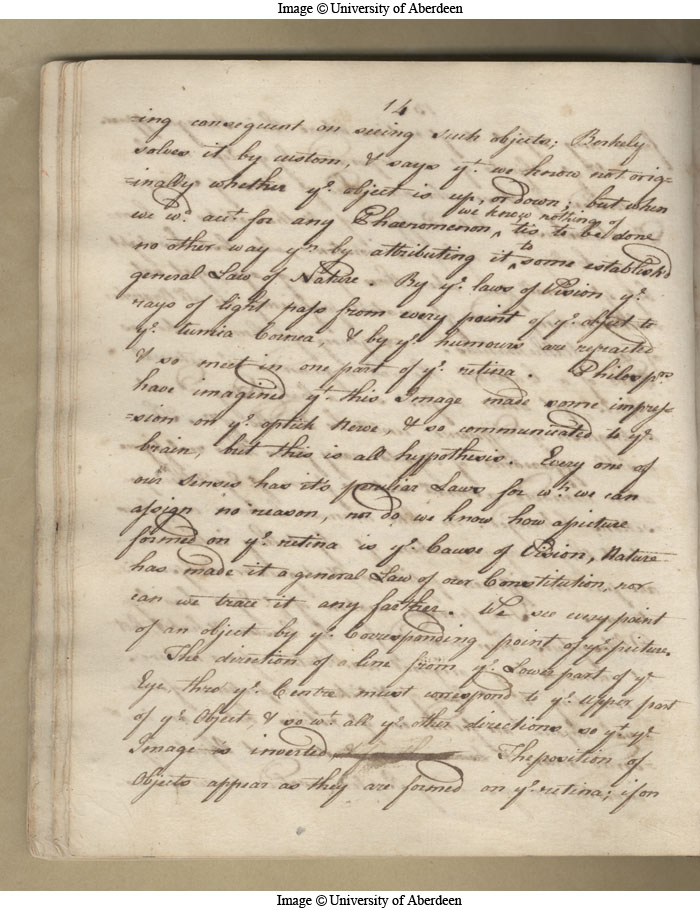 Image © University of Aberdeen
14
=ing consequent on seeing such objects; Berkely
solves it by custom, & says yt. we know not orig=
=inally whether ye. object is up, or down; but when
we knew nothing of
we wd. act. for any Phaenomenon ‸ tis to be done
to
no other way yn. by attributing it ‸ some establish'd
general Law of Nature. By ye. laws of Vision ye.
rays of light pass from every point of ye. object to
ye. tunica Cornea, & by ye. humours are refracted
& so meet in one part of ye. retina. Philosprs.
have imagined yt. this Image made some impres=
=sion on ye. optick Nerve, & so communicated to ye.
brain, but this is all hypothesis. Every one of
our senses has it's peculiar Laws for wh. we can
assign no reason, nor do we know how a picture
formed on ye. retina is ye. Cause of Vision, Nature
has made it a general Law of our Constitution, nor
can we trace it any farther. We see every point
of an object by ye. Corresponding point of ye. picture.
The direction of a line from ye. Lower part of ye
Eye thro' ye. Centre must correspond to ye. upper part
of ye. Object & so wt. all ye. other directions so yt. ye.
Image is inverted The position of
Objects appear as they are formed on ye. retina; if on
Image © University of Aberdeen